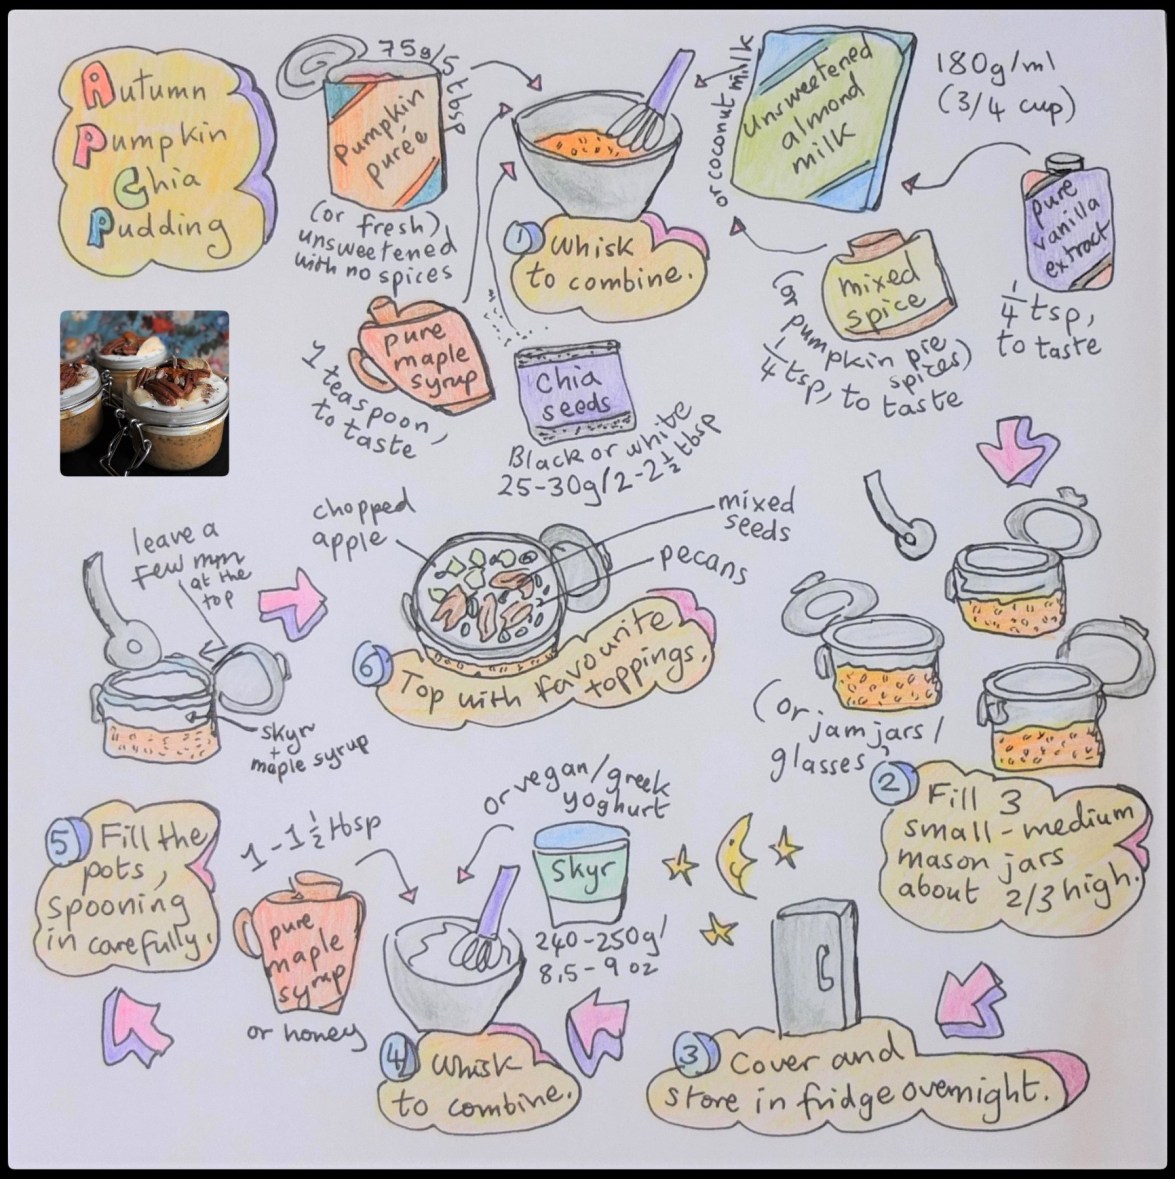 Autumn
Pumpkin
Chia
Pudding
75g/5 tbsp
Pumpkin
purée
(or fresh)
unsweetened
with no spices
1
Whisk
to combine.
or coconut milk
Unsweetened
almond
milk
180g/ml
(3/4 cup)
pure
vanilla
extract
1/4 tsp,
to taste
mixed
spice
(or pumpkin pie
spices)
1/4 tsp, to taste
pure
maple
syrup
1 teaspoon,
to taste
Chia
seeds
Black or white
25-30g/2-2 1/2 tbsp
(or jam jars/
glasses)
2
Fill 3
small-medium
mason jars
about 2/3 high.
3
Cover and
store in fridge overnight.
or vegan/greek
yoghurt
Skyr
240-250g/
8.5-9 oz
1-1 1/2 tbsp
pure
maple
syrup
or honey
4
Whisk
to combine.
5
Fill the
pots,
spooning
in carefully.
leave a
few mm
at the
top
skyr
+
maple syrup
chopped
apple
mixed
seeds
pecans
6
Top with favourite
toppings.